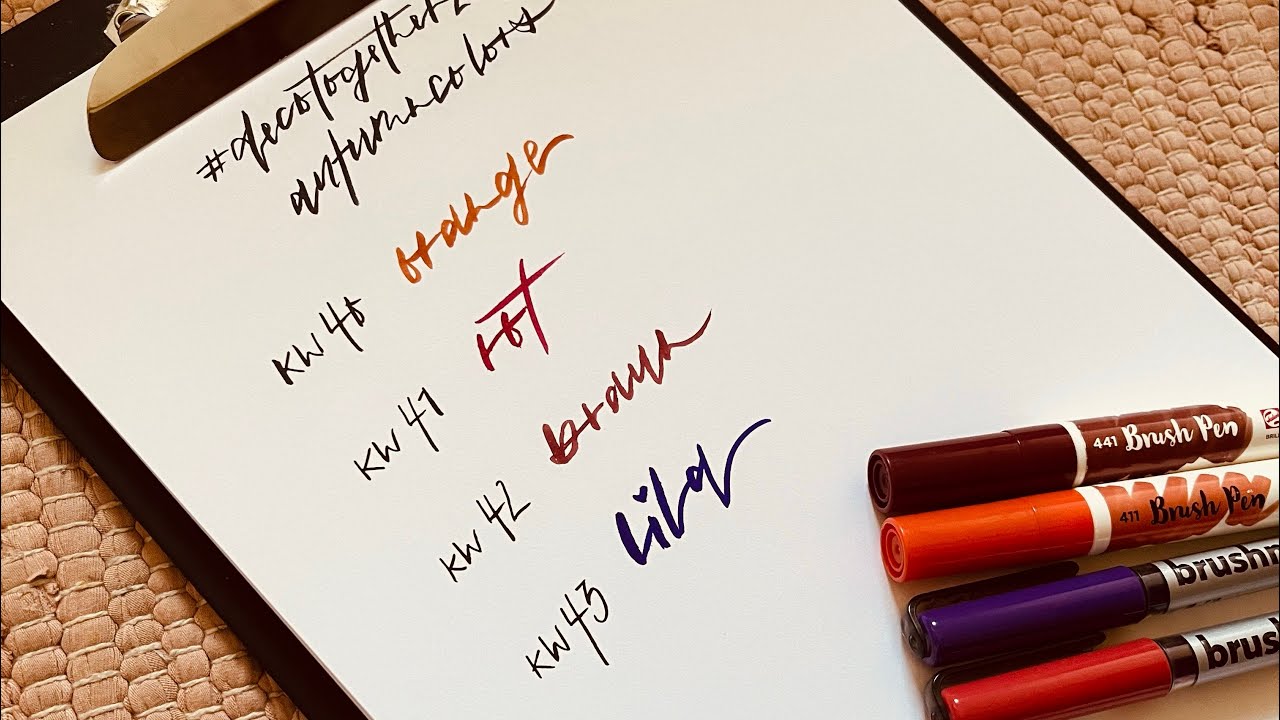 #decotogether
autumncolors
KW 40 orange
KW 41 rot
KW 42 braun
KW 43 lila
441 Brush Pen
411 Brush Pen
brush
brush